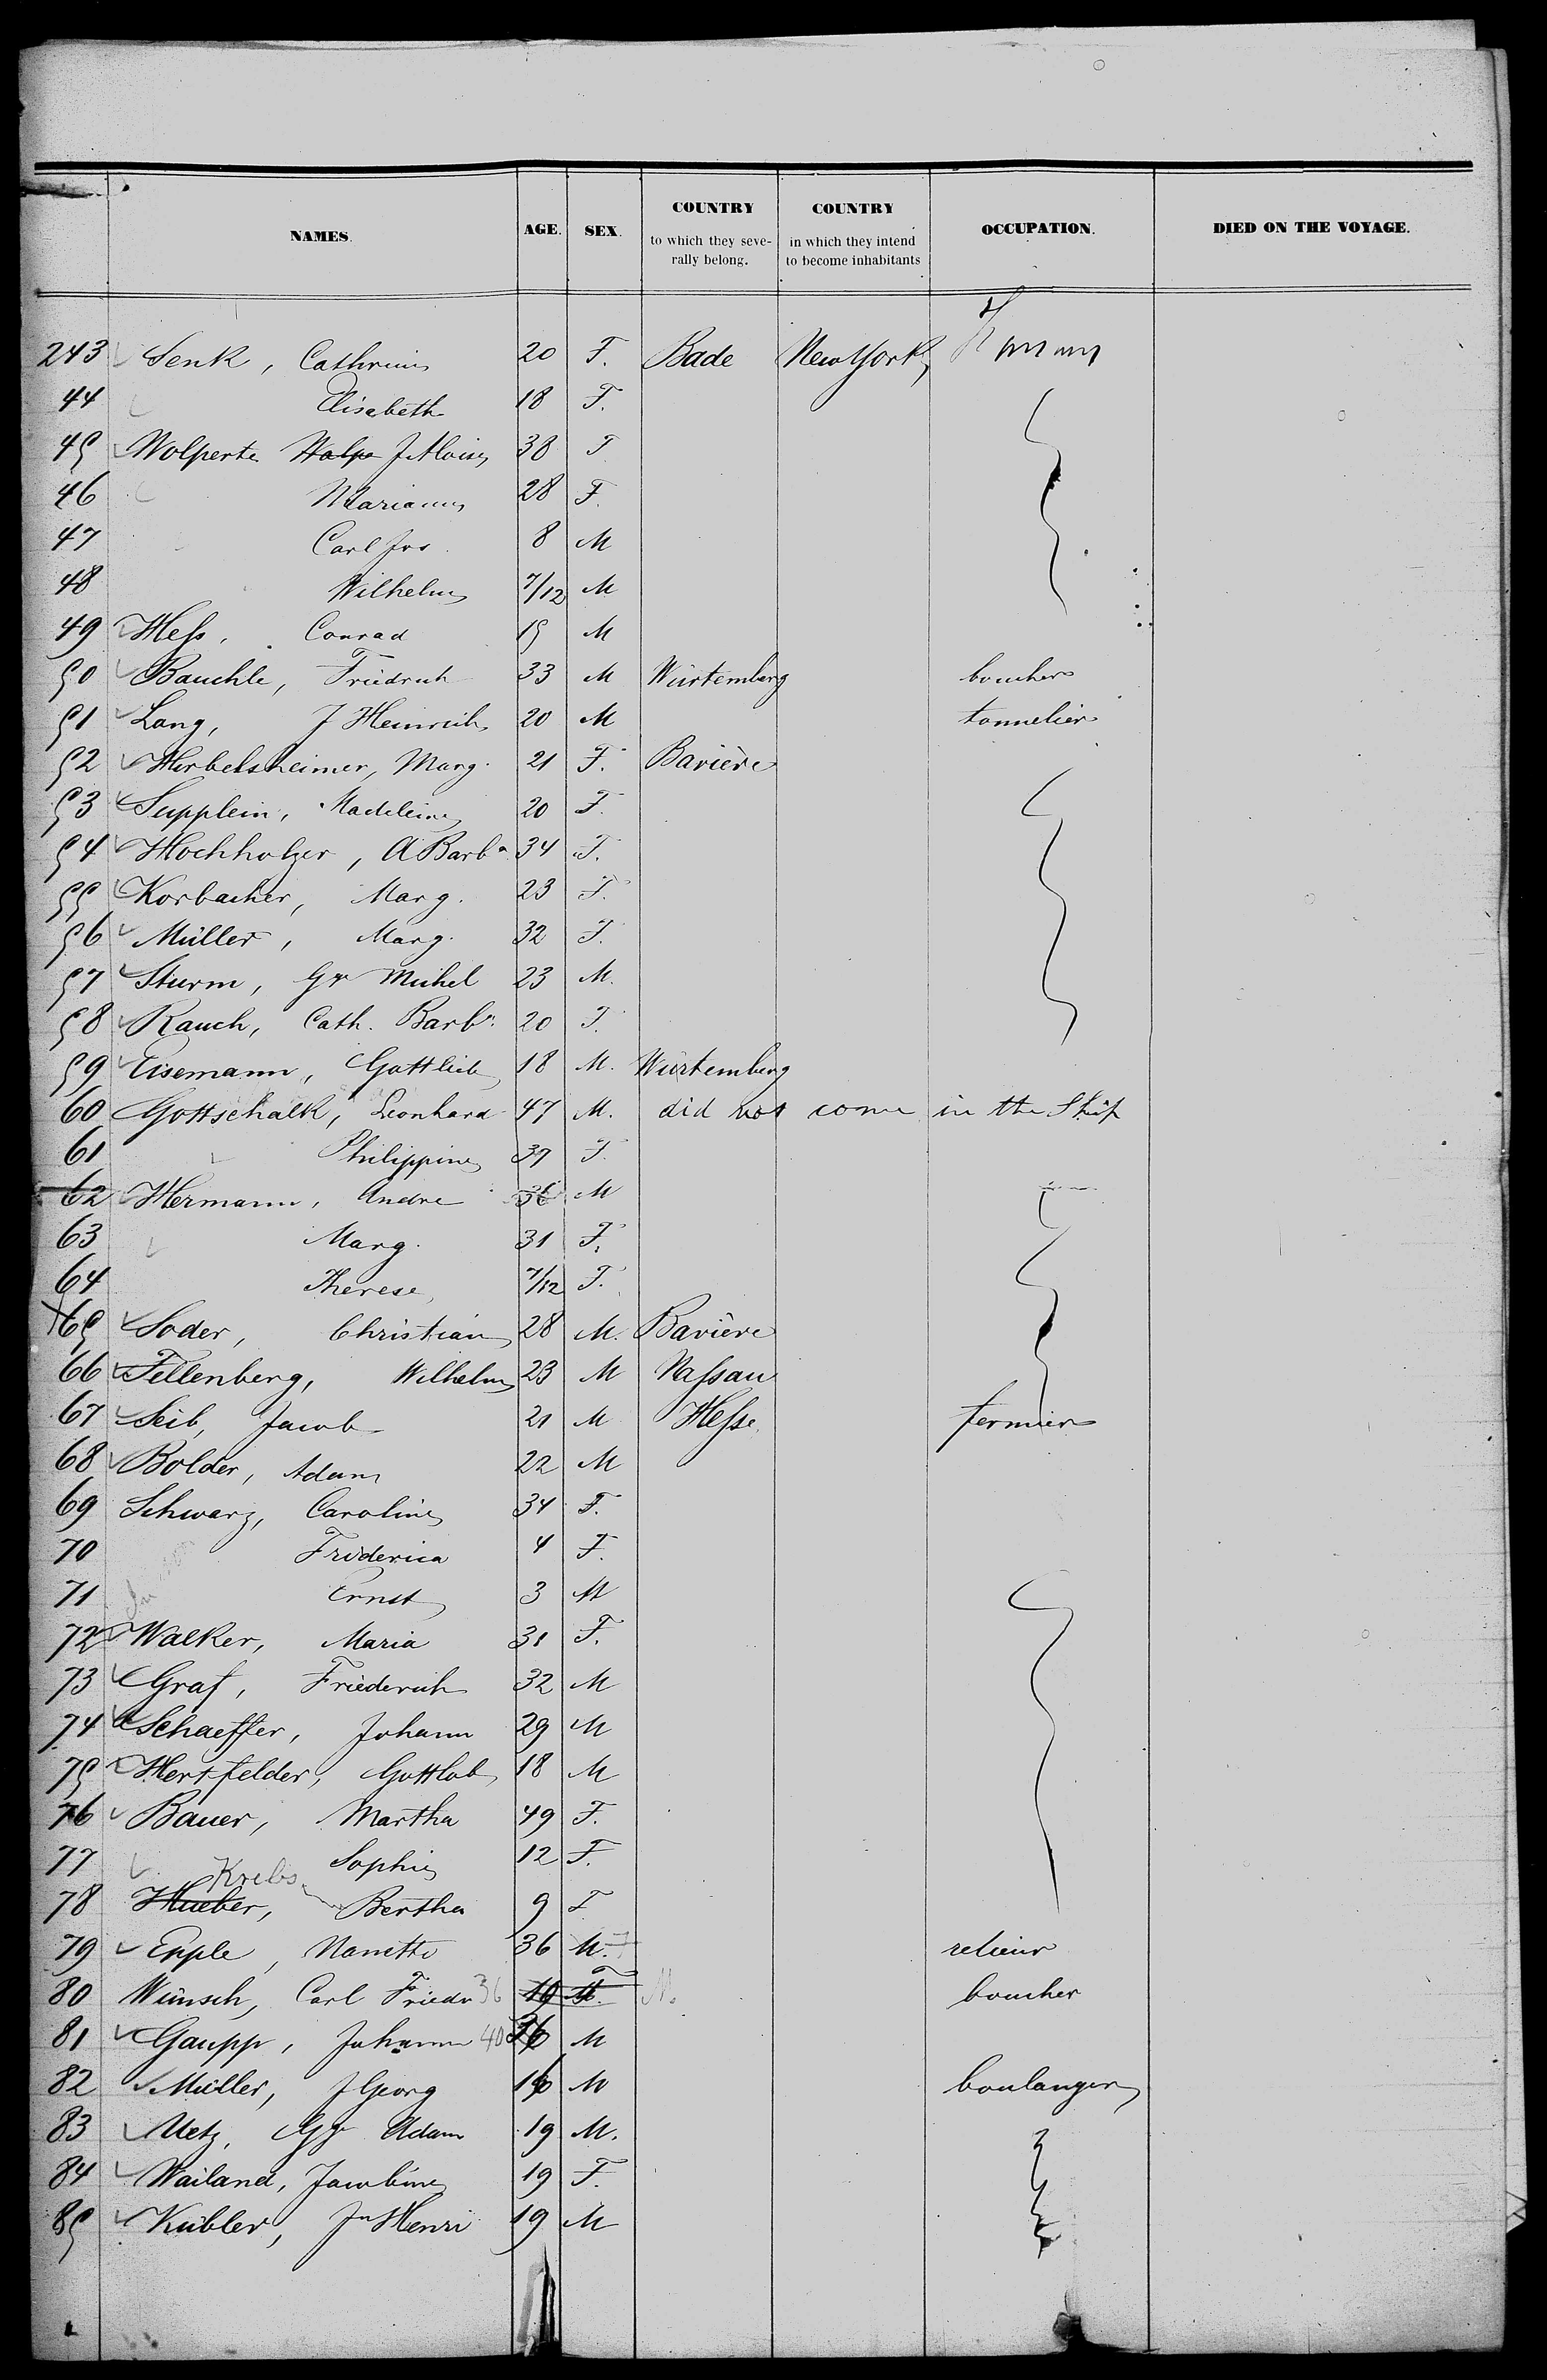 NAMES. AGE. SEX. COUNTRY to which they seve- rally belong. COUNTRY in which they intend to become inhabitants OCCUPATION. DIED ON THE VOYAGE.
243 Senk, Cathrine 20 F. Bade New York
44 Elisabeth 18 F.
45 Wolperte Wolpe J Aloise 38 F
46 Marianne 28 F.
47 Carl Jos. 8 M
48 Wilhelm 7/12 M
49 Hess, Conrad 15 M
50 Bauchle, Friedrich 33 M Würtemberg boucher
51 Lang, J Heinrich 20 M tonnelier
52 Herbelsheimer, Marg. 21 F. Bavière
53 Supplein, Madeleine 20 F.
54 Hochholzer, A Barba 34 F.
55 Korbacher, Marg. 23 F.
56 Müller, Marg. 32 F.
57 Sturm, Gg Michel 23 M.
58 Rauch, Cath. Barba 20 F.
59 Eisemann, Gottlieb 18 M. Würtemberg
60 Gottschalk, Leonhard 47 M. did not come in the Ship
61 Philippine 37 F.
62 Hermann, Andre 36 M
63 Marg. 31 F.
64 Therese, 7/12 F.
65 Soder, Christian 28 M. Bavière
66 Fellenberg, Wilhelm 23 M Nassau
67 Seib, Jacob 21 M Hesse fermier
68 Bolder, Adam 22 M
69 Schwarz, Caroline 34 F.
70 Friderica 4 F.
71 Ernst 3 M
72 Walker, Maria 31 F.
73 Graf, Friederich 32 M
74 Schaeffer, Johann 29 M
75 Hertfelder, Gottlob 18 M
76 Bauer, Martha 49 F.
77 Sophie 12 F.
Krebs
78 Hueber, Bertha 9 F
79 Epple, Nanette 36 M. F relieur
80 Wünsch, Carl Friedr 36 19 F. M. boucher
81 Gaupp, Johann 40 36 M
82 Müller, J Georg 16 M boulanger
83 Metz, Gg Adam 19 M.
84 Wailand, Jacobine 19 F.
85 Kübler, Jn Henri 19 M